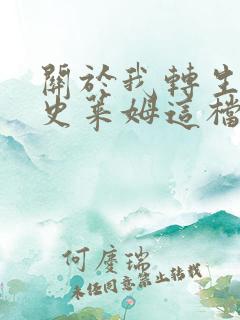 關於我轉生
史萊姆這檔
何慶瑞
未经同意禁止转载